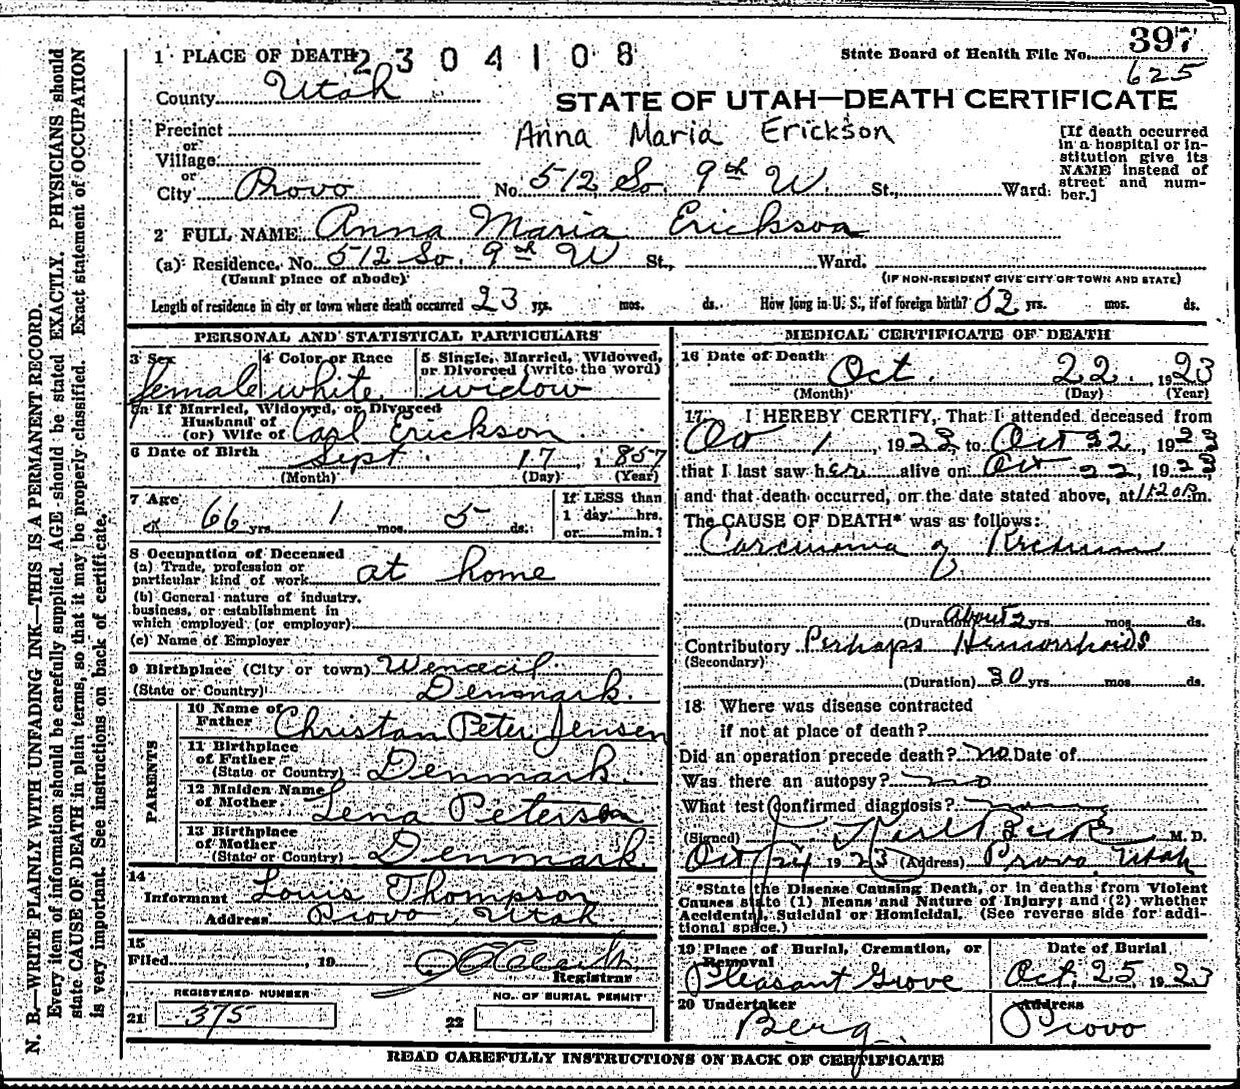 397
State Board of Health File No.
625
1 PLACE OF DEATH 2304108
County Utah
STATE OF UTAH—DEATH CERTIFICATE
Anna Maria Erickson
Precinct
or
Village
or
City Provo No. 512 So. 9th W. St., Ward.
[If death occurred in a hospital or institution give its NAME instead of street and number.]
2 FULL NAME Anna Maria Erickson
(a) Residence. No. 512 So. 9th W St., Ward.
(Usual place of abode) (IF NON-RESIDENT GIVE CITY OR TOWN AND STATE)
Length of residence in city or town where death occurred 23 yrs. mos. ds. How long in U. S., if of foreign birth? 52 yrs. mos. ds.
PERSONAL AND STATISTICAL PARTICULARS
3 Sex female
4 Color or Race white
5 Single, Married, Widowed, or Divorced (write the word) widow
5a If Married, Widowed, or Divorced
Husband of
(or) Wife of Carl Erickson
6 Date of Birth Sept. 17, 1857
(Month) (Day) (Year)
7 Age 66 yrs. 1 mos. 5 ds.
If LESS than
1 day hrs.
or min.?
8 Occupation of Deceased
(a) Trade, profession or
particular kind of work at home
(b) General nature of industry,
business, or establishment in
which employed (or employer)
(c) Name of Employer
9 Birthplace (City or town)
(State or Country) Denmark.
PARENTS
10 Name of Father Christan Peter Jensen
11 Birthplace of Father
(State or Country) Denmark.
12 Maiden Name of Mother Lena Peterson
13 Birthplace of Mother
(State or Country) Denmark
14
Informant Louis Thompson
Address Provo, Utah.
15
Filed , 19
Registrar
REGISTERED NUMBER
21 375
NO. OF BURIAL PERMIT
22
MEDICAL CERTIFICATE OF DEATH
16 Date of Death Oct. 22, 1923
(Month) (Day) (Year)
17 I HEREBY CERTIFY, That I attended deceased from
1, 19 to Oct 22, 192
that I last saw her alive on Oct 22, 192
and that death occurred, on the date stated above, at m.
The CAUSE OF DEATH* was as follows:
Carcinoma of Rectum
(Duration) About 2 yrs. mos. ds.
Contributory Perhaps Hemorrhoids
(Secondary)
(Duration) 30 yrs. mos. ds.
18 Where was disease contracted
if not at place of death?
Did an operation precede death? no Date of
Was there an autopsy? no
What test confirmed diagnosis?
(Signed) M. D.
Oct 24 1923 (Address) Provo Utah
*State the Disease Causing Death, or in deaths from Violent
Causes state (1) Means and Nature of Injury; and (2) whether
Accidental, Suicidal or Homicidal. (See reverse side for addi-
tional space.)
19 Place of Burial, Cremation, or Removal
Pleasant Grove
Date of Burial
Oct. 25, 1923
20 Undertaker
Berg
Address
Provo
READ CAREFULLY INSTRUCTIONS ON BACK OF CERTIFICATE
N. B.—WRITE PLAINLY WITH UNFADING INK—THIS IS A PERMANENT RECORD.
Every item of information should be carefully supplied. AGE should be stated EXACTLY. PHYSICIANS should
state CAUSE OF DEATH in plain terms, so that it may be properly classified. Exact statement of OCCUPATION
is very important. See instructions on back of certificate.